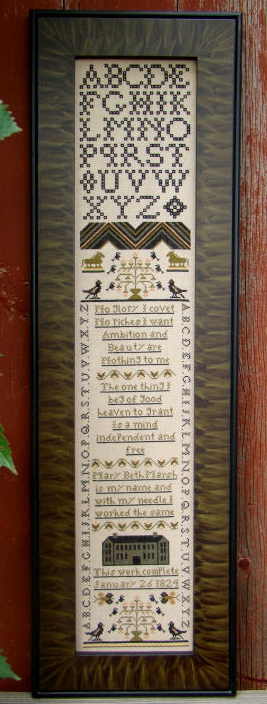 ABCDE
FGHIK
LMNO
PQRST
UVV
XYZ
No Glory I covet
No riches I want
Ambition and
Beauty are
Nothing to me
The one thing I
beg of good
heaven to grant
Is a mind
independent and
free
Mary Beth Marsh
is my name and
with my needle I
worked the same
This work complete
January 26 1824